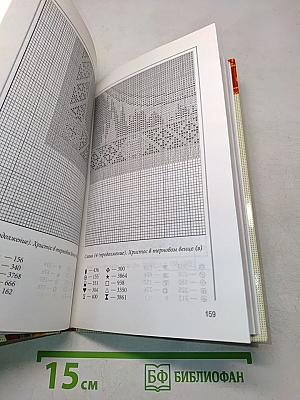 должение). Христос в терновом вен
— 156
— 340
— 3768
— 666
162
Схема 14 (продолжение). Христос в терновом венце (а)
— 436
— 300
— 155
— 3864
— 351
— 938
— 304
— 3350
— 400
— 3861
159
15 см
БФ БИБЛИОФАН